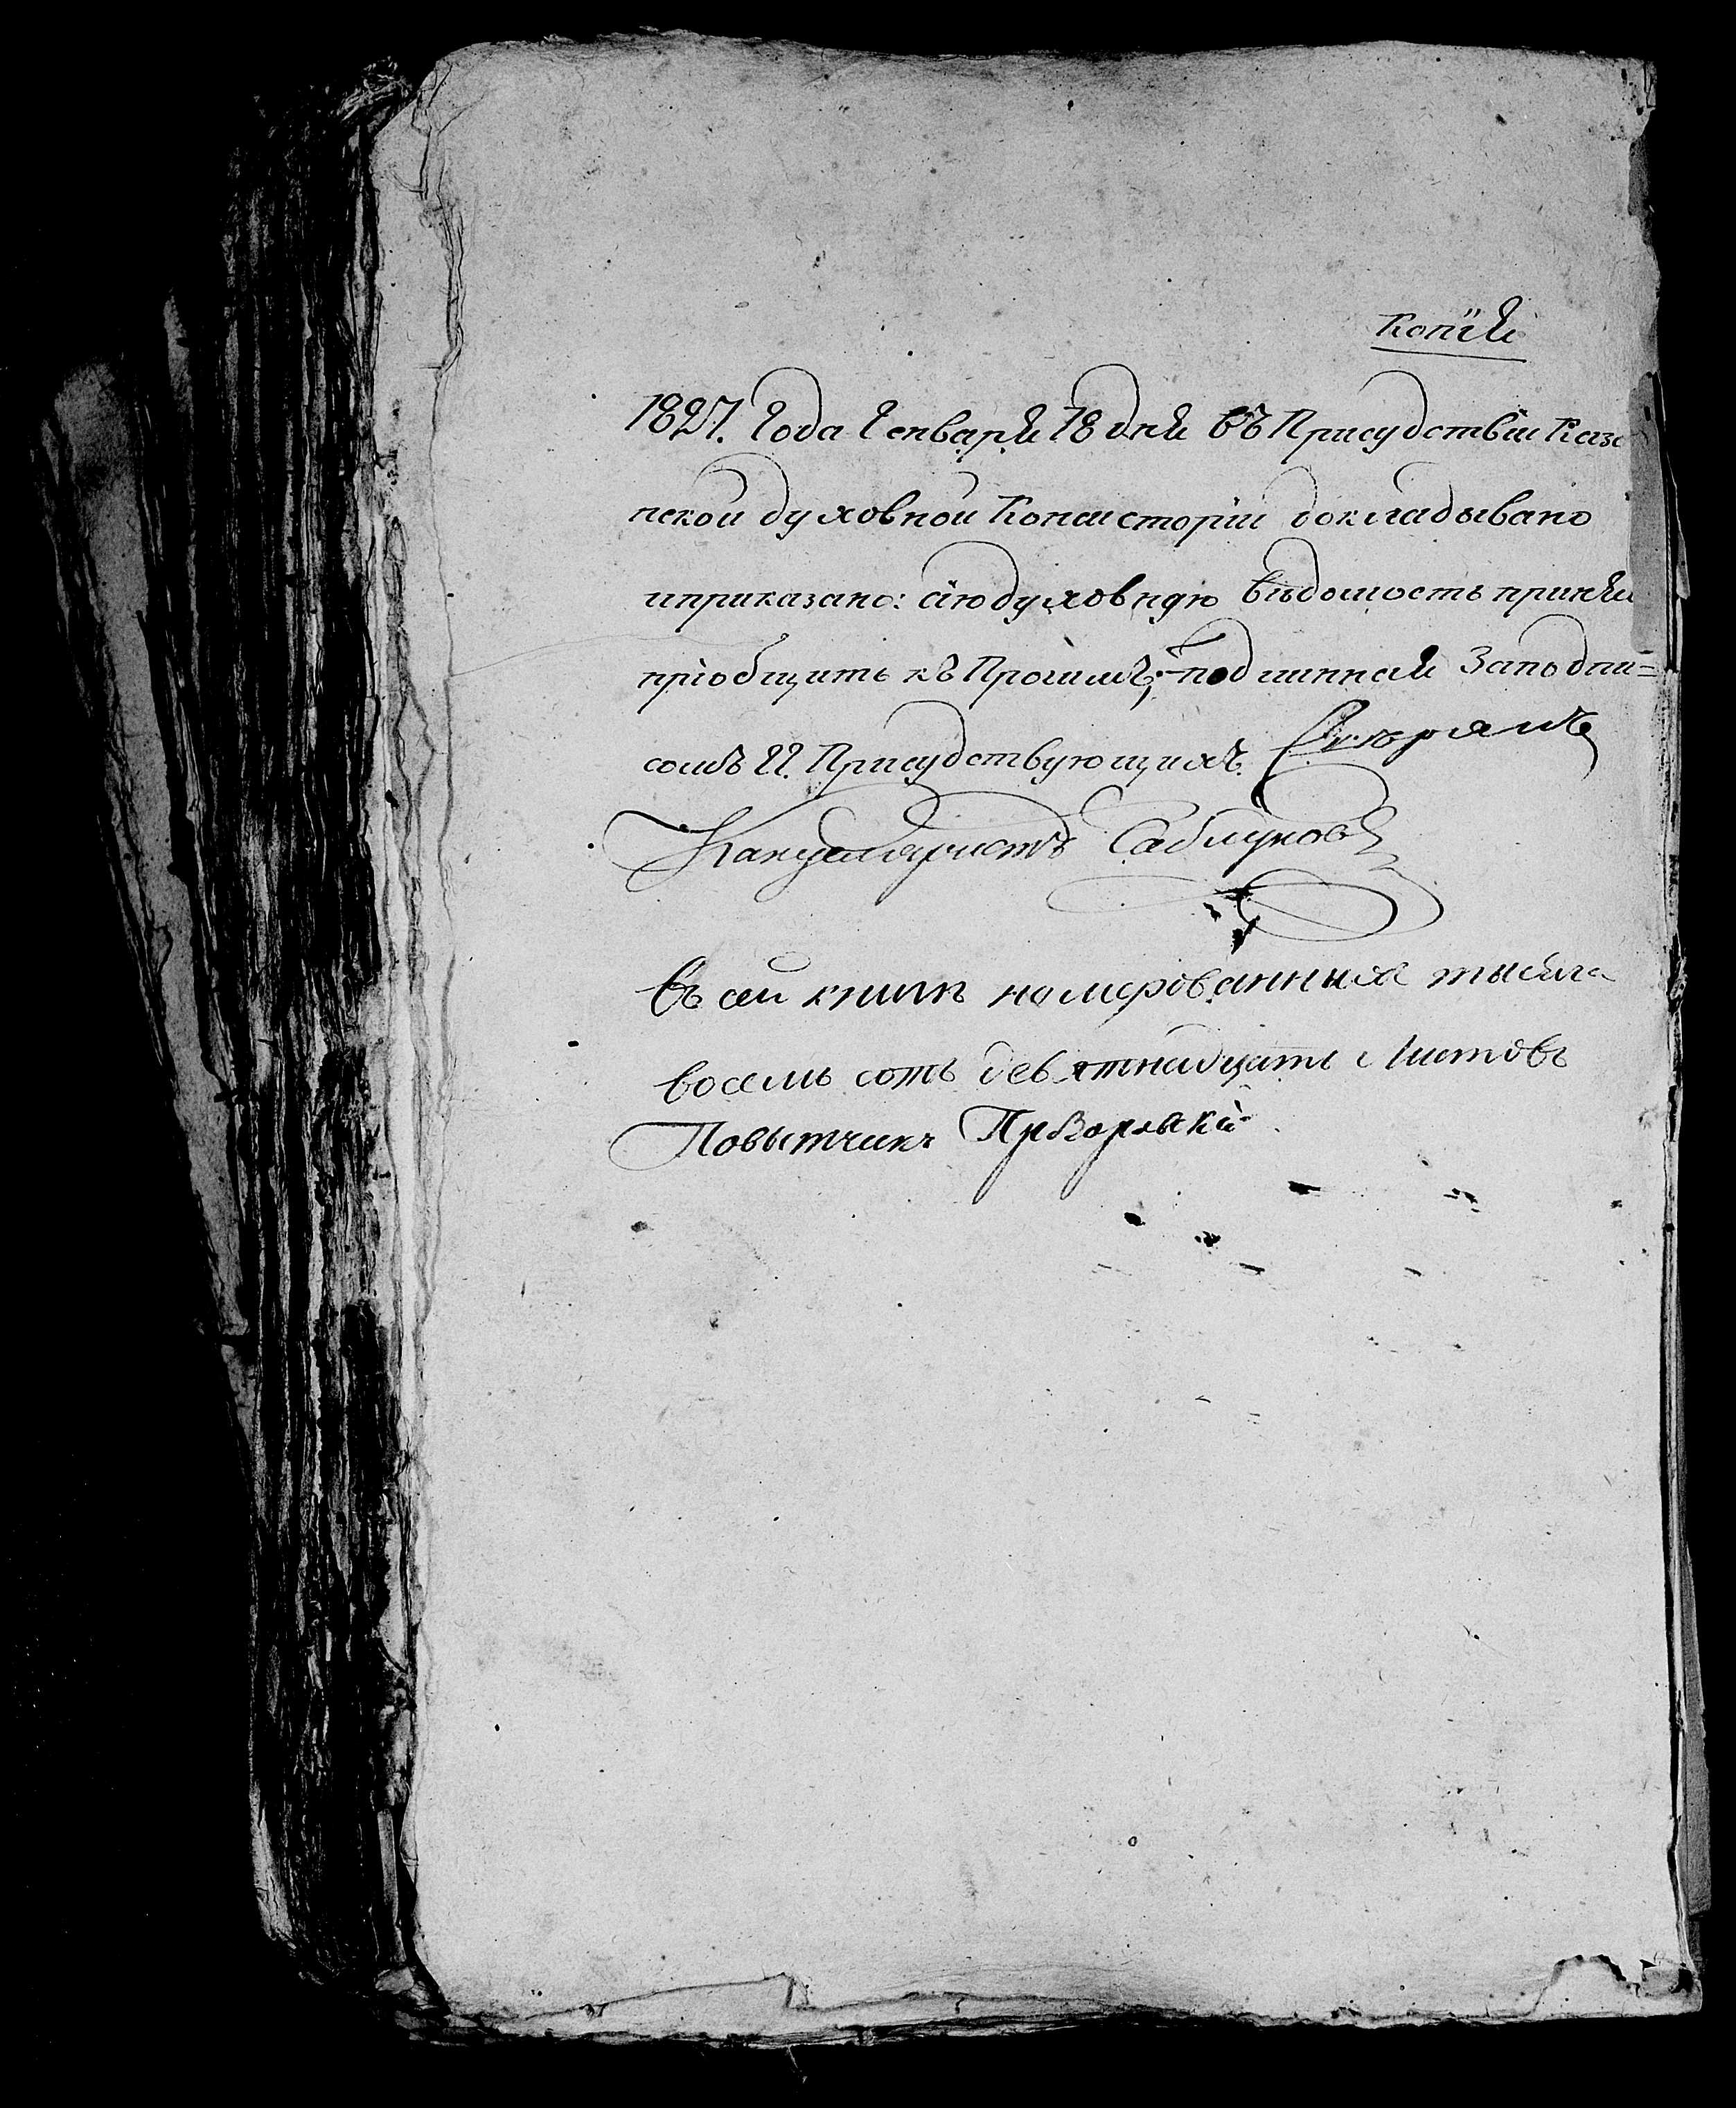 Копія
1827. Года Генваря 18 дня въ Присудствіи Каза
нской духовной Консисторіи докладывано
и приказано: сію духовную вѣдомость принявъ
пріобщить къ Прочимъ; подлинная За подпи=
сомъ Гг. Присудствующихъ.
Канцеляристъ Саблуковъ
въ сей книгѣ номерованныхъ тысяча
восемь сотъ девятнадцать Листовъ
Повытчикъ